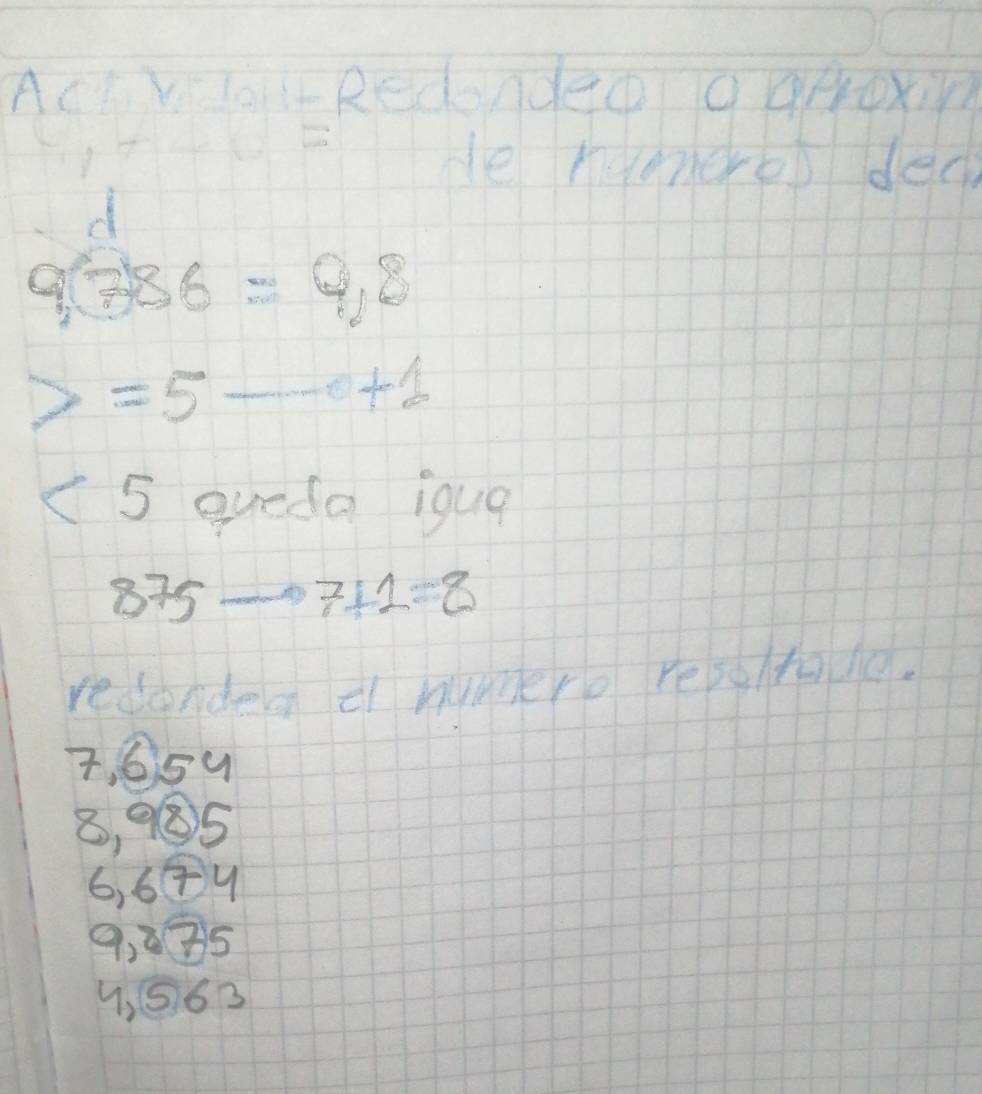 Actividad-Redondeo o aproxim
de numeros deci
d
9,786 = 9,8
> = 5 → +1
< 5 queda igua
875 → 7+1=8
redondea el numero resaltado.
7,654
8,985
6,674
9,875
4,563